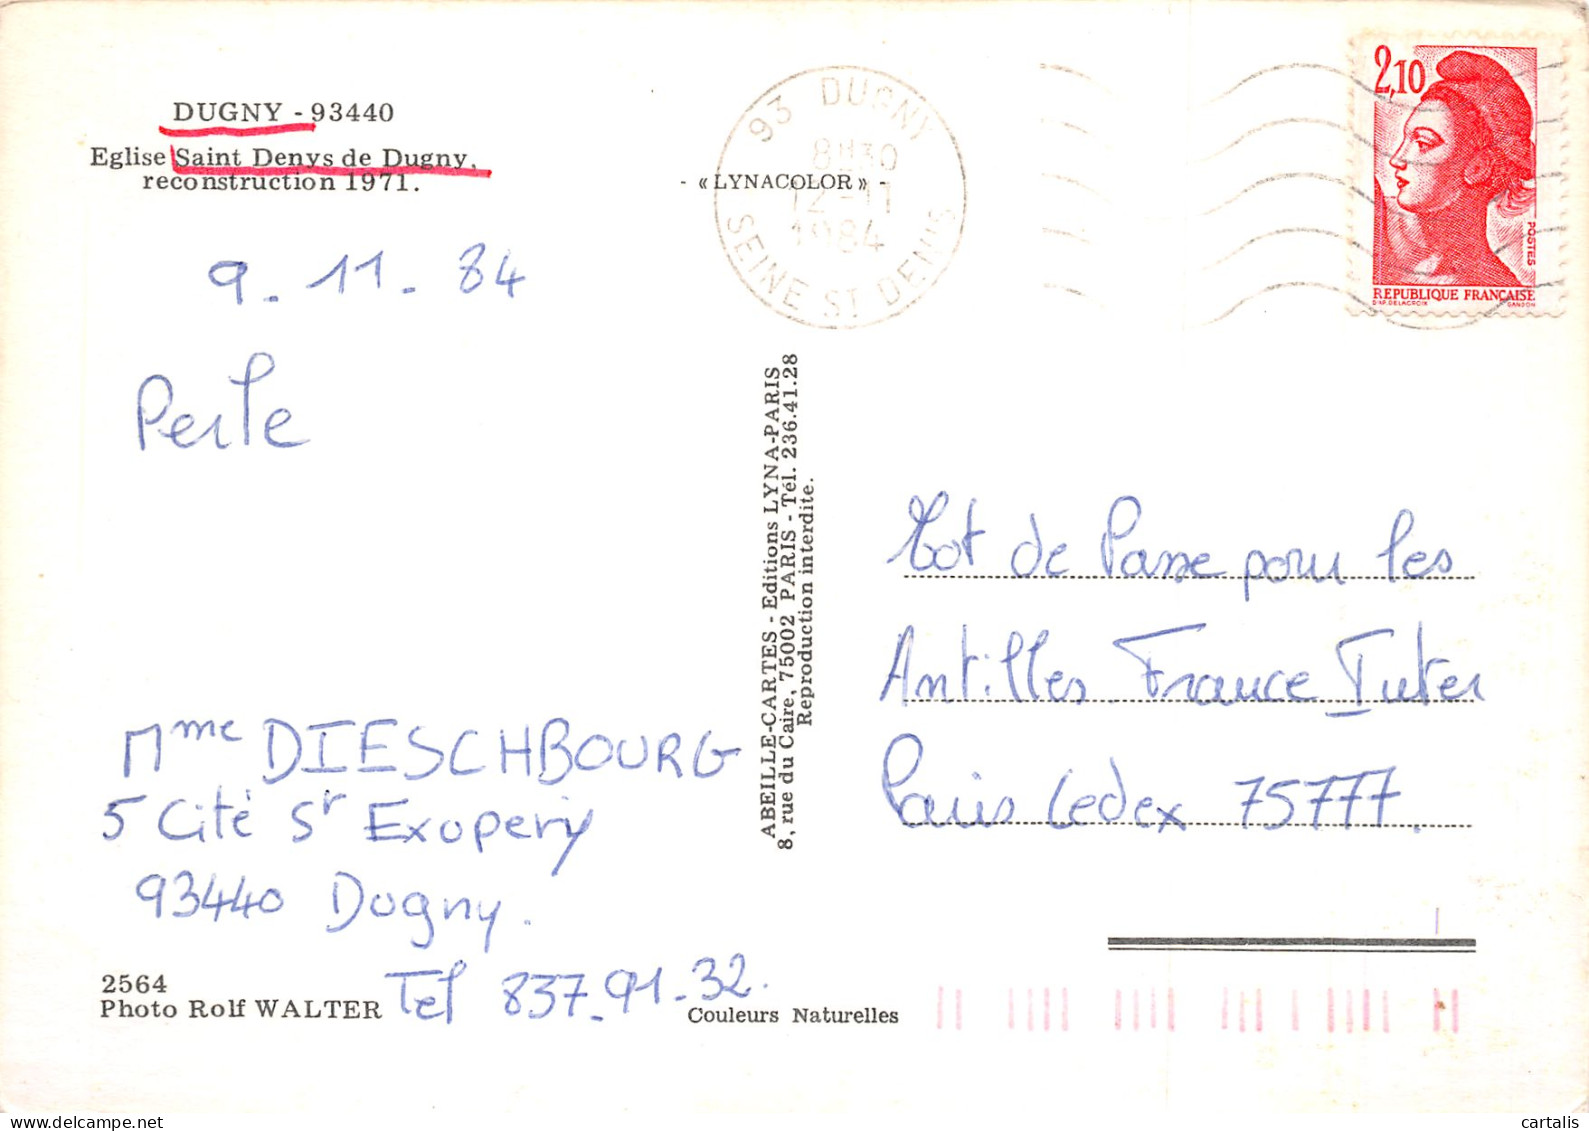 DUGNY - 93440
Eglise Saint Denys de Dugny,
reconstruction 1971.
- « LYNACOLOR » -
93 DUGNY
8H30
12-11
1984
SEINE ST DENIS
2,10
POSTES
REPUBLIQUE FRANÇAISE
D'AP. DELACROIX GANDON
9. 11. 84
Perle
ABEILLE-CARTES - Editions LYNA-PARIS
8, rue du Caire, 75002 PARIS - Tél. 236.41.28
Reproduction interdite.
Mot de Passe pour les
Antilles. France Inter
Paris Cedex 75777.
Mme DIESCHBOURG
5 Cité St Exupery
93440 Dugny.
Tel 837.91.32.
2564
Photo Rolf WALTER
Couleurs Naturelles
www.delcampe.net
cartalis